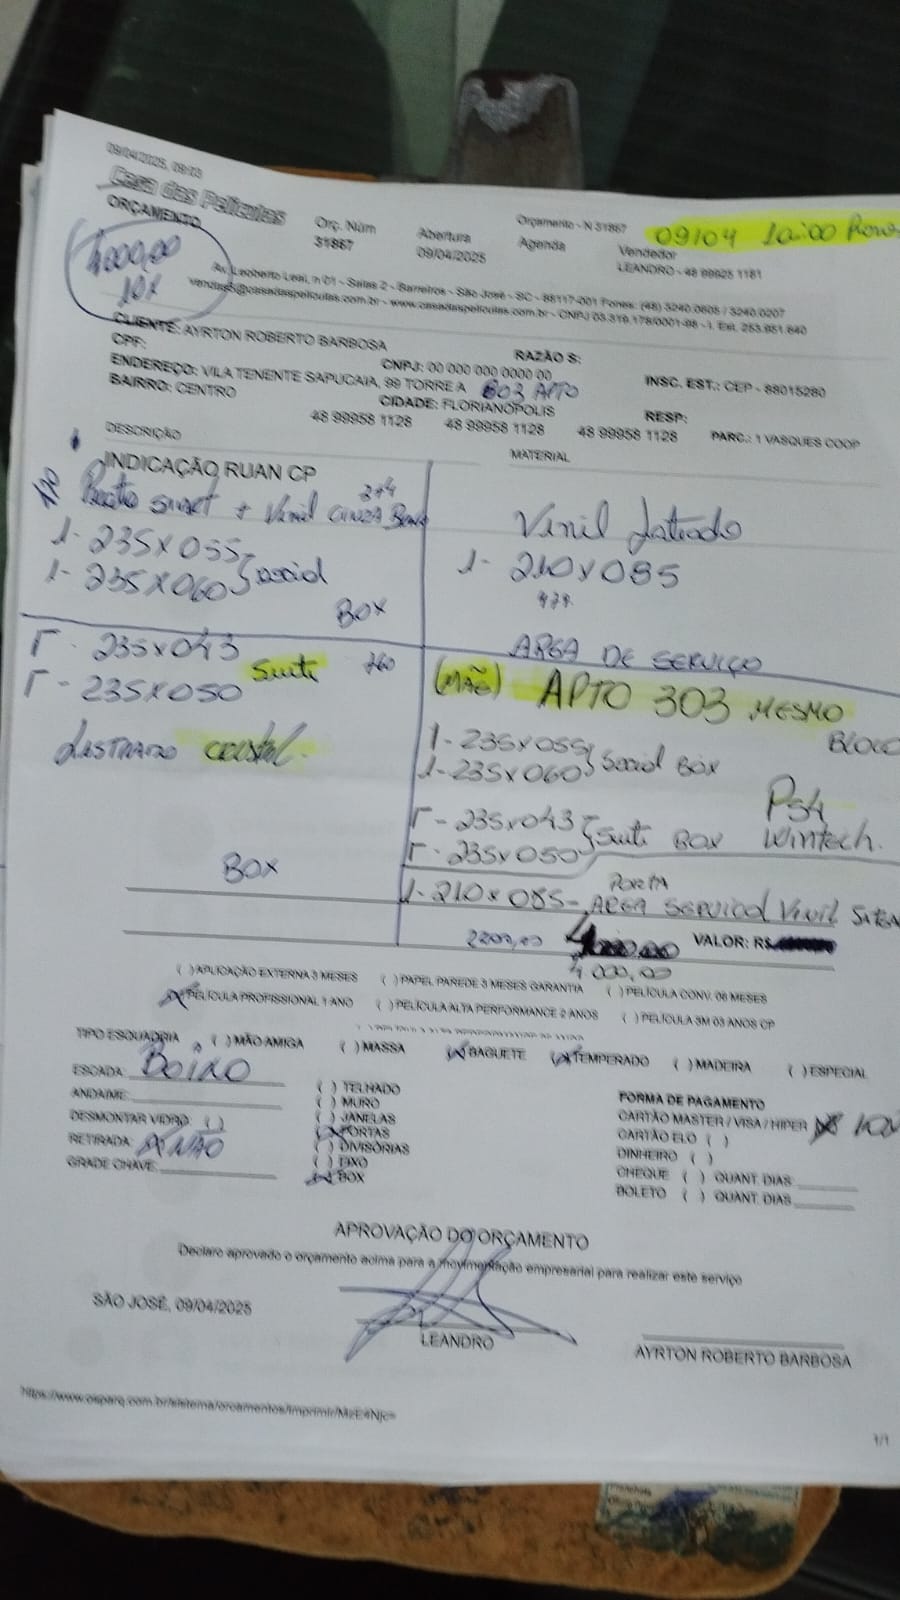 09/04/2025, 09:03
Casa das Películas
ORÇAMENTO
4000,00
10x
Orç. Núm
31867
Abertura
09/04/2025
Orçamento - N 31867
Agenda
09/04 10:00
Vendedor
LEANDRO - 48 99925 1181
Av. Leoberto Leal, n 01 - Salas 2 - Barreiros - São José - SC - 88117-001 Fones: (48) 3240.0605 / 3240.0207
vendas5@casadaspeliculas.com.br - www.casadaspeliculas.com.br - CNPJ 03.319.178/0001-98 - I. Est. 253.951.640
CLIENTE: AYRTON ROBERTO BARBOSA
RAZÃO S:
CPF:
CNPJ: 00 000 000 0000 00
INSC. EST.: CEP - 88015280
ENDEREÇO: VILA TENENTE SAPUCAIA, 99 TORRE A 603 APTO
BAIRRO: CENTRO
CIDADE: FLORIANÓPOLIS
RESP:
48 99958 1128
48 99958 1128
48 99958 1128
PARC.: 1 VASQUES COOP
DESCRIÇÃO
MATERIAL
INDICAÇÃO RUAN CP
sunset + Vinil CINZA
1- 235x055
1- 235x060 } social
BOX
Vinil Jateado
1- 210x085
AREA DE SERVIÇO
Γ - 235x043
Γ - 235x050
Suite
760
cristal.
BOX
(MÃE) APTO 303 MESMO
BLOCO
1- 235x055
1- 235x060 } Social Box
Γ - 235x043
Γ - 235x050 } Suite BOX
PS4
Wintech.
PORTA
1- 210x085 - AREA SERVIÇO Vinil
VALOR: R$
4000,00
( ) APLICAÇÃO EXTERNA 3 MESES ( ) PAPEL PAREDE 3 MESES GARANTIA ( ) PELÍCULA CONV. 06 MESES
(X) PELÍCULA PROFISSIONAL 1 ANO ( ) PELÍCULA ALTA PERFORMANCE 2 ANOS ( ) PELÍCULA 3M 03 ANOS CP
TIPO ESQUADRIA ( ) MÃO AMIGA ( ) MASSA (X) BAGUETE (X) TEMPERADO ( ) MADEIRA ( ) ESPECIAL
ESCADA: BAIXO
ANDAIME:
DESMONTAR VIDRO: ( )
RETIRADA: NÃO
GRADE CHAVE:
( ) TELHADO
( ) MURO
( ) JANELAS
(X) PORTAS
( ) DIVISÓRIAS
( ) FIXO
(X) BOX
FORMA DE PAGAMENTO
CARTÃO MASTER / VISA / HIPER (X) 10x
CARTÃO ELO ( )
DINHEIRO ( )
CHEQUE ( ) QUANT. DIAS
BOLETO ( ) QUANT. DIAS
APROVAÇÃO DO ORÇAMENTO
Declaro aprovado o orçamento acima para a movimentação empresarial para realizar este serviço
SÃO JOSÉ, 09/04/2025
LEANDRO
AYRTON ROBERTO BARBOSA
https://www.osparq.com.br/sistema/orcamentos/imprimir/MzE4Njc=
1/1